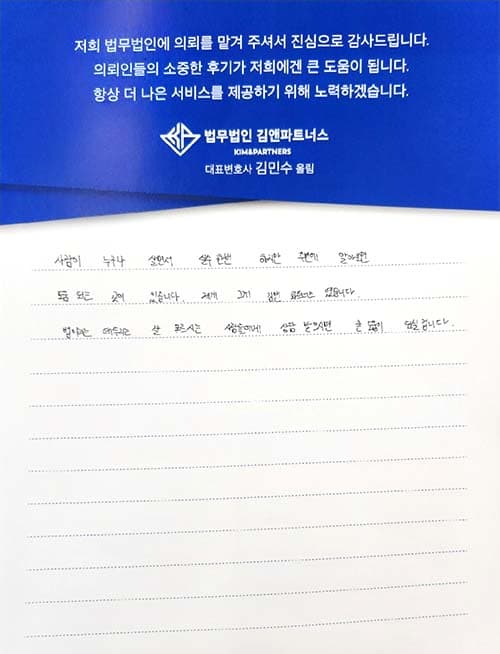 저희 법무법인에 의뢰를 맡겨 주셔서 진심으로 감사드립니다.
의뢰인들의 소중한 후기가 저희에겐 큰 도움이 됩니다.
항상 더 나은 서비스를 제공하기 위해 노력하겠습니다.
법무법인 김앤파트너스
KIM&PARTNERS
대표변호사 김민수 올림
사람이 누구나 살면서 실수 한번 하지만 주변에 알아보면
도움 되는 곳이 있습니다. 저에게 그게 김앤 파트너스 였습니다.
법이라는 테두리는 잘 모르시는 사람들에게 상담 받으시면 큰 도움이 되실겁니다.